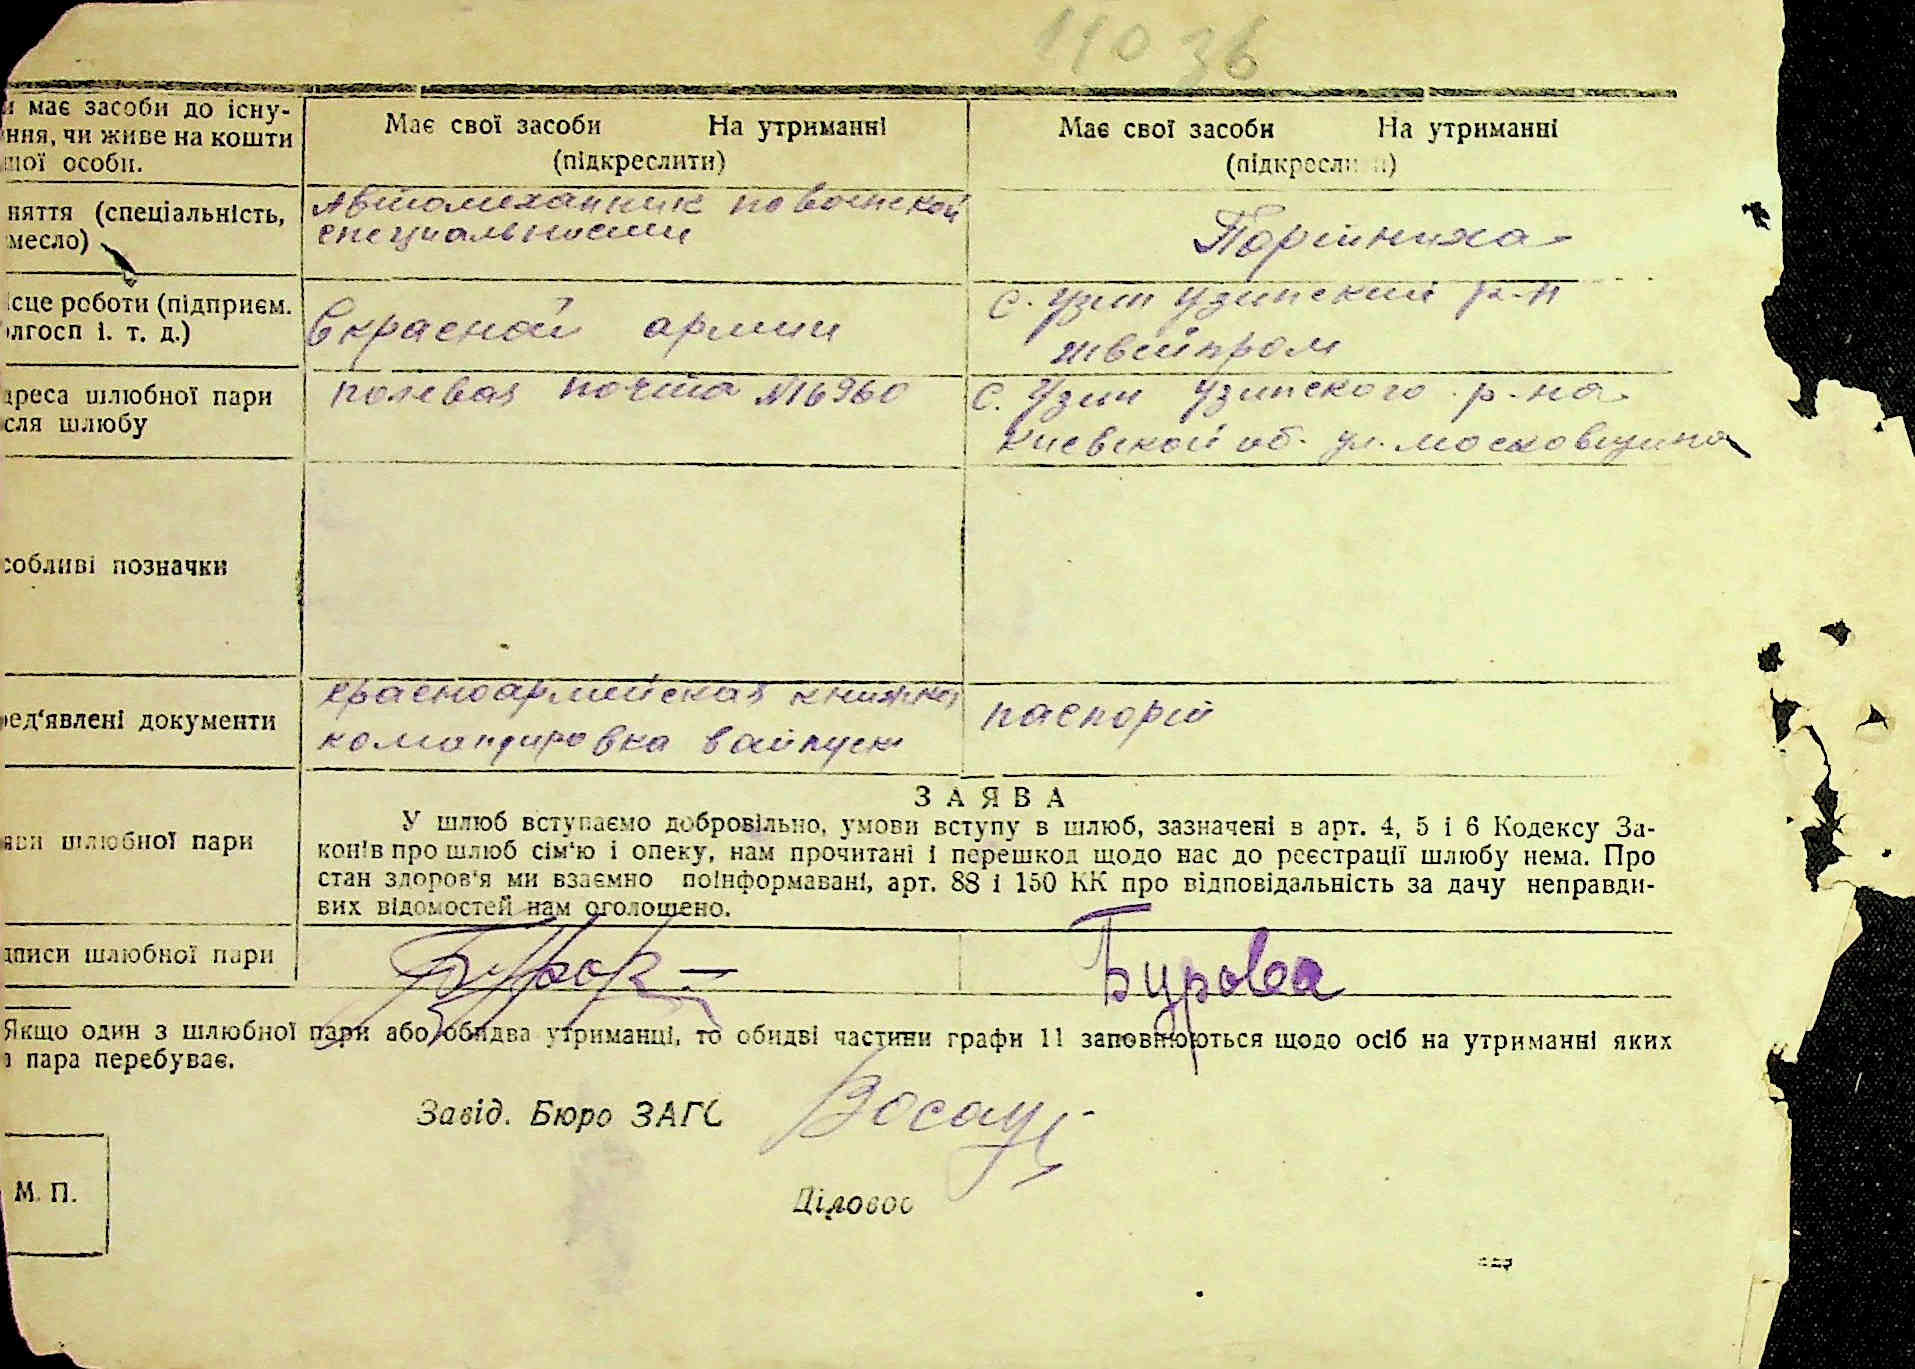 11036
и має засоби до існу-
ння, чи живе на кошти
шої особи.
Має свої засоби На утриманні
(підкреслити)
Має свої засоби На утриманні
(підкресли и)
няття (спеціальність,
месло)
Автомеханник по воинской
специальности
Портниха
ісце роботи (підприєм.
олгосп і. т. д.)
В красной армии
с. Узин Узинский р-н
швейпром
дреса шлюбної пари
сля шлюбу
полевая почта №16960
с. Узин Узинского р-на
Киевской об. ул. московщина
собливі позначки
ред‘явлені документи
красноармейская книжка
командировка в отпуск
паспорт
яви шлюбної пари
ЗАЯВА
У шлюб вступаємо добровільно, умови вступу в шлюб, зазначені в арт. 4, 5 і 6 Кодексу За-
конів про шлюб сім‘ю і опеку, нам прочитані і перешкод щодо нас до реєстрації шлюбу нема. Про
стан здоров‘я ми взаємно поінформавані, арт. 88 і 150 КК про відповідальність за дачу неправди-
вих відомостей нам оголошено.
дписи шлюбної пари
Бурова
Якщо один з шлюбної пари або обидва утриманці, то обидві частини графи 11 заповнюються щодо осіб на утриманні яких
а пара перебуває.
Завід. Бюро ЗАГС
М. П.
Діловод